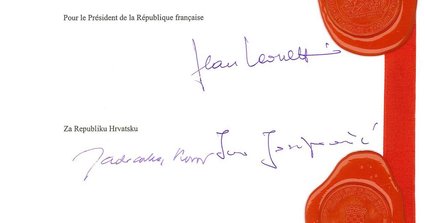 Pour le Président de la République française
Jean Leonetti
Za Republiku Hrvatsku
Jadranka Kosor Ivo Josipović